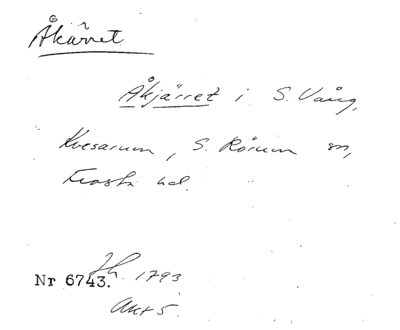 Åkärret
Åkjärret i S. Vång,
Kvesarum, S. Rörum sn,
Frosta hd.
Nr 6743. Jh. 1793
Akt 5.